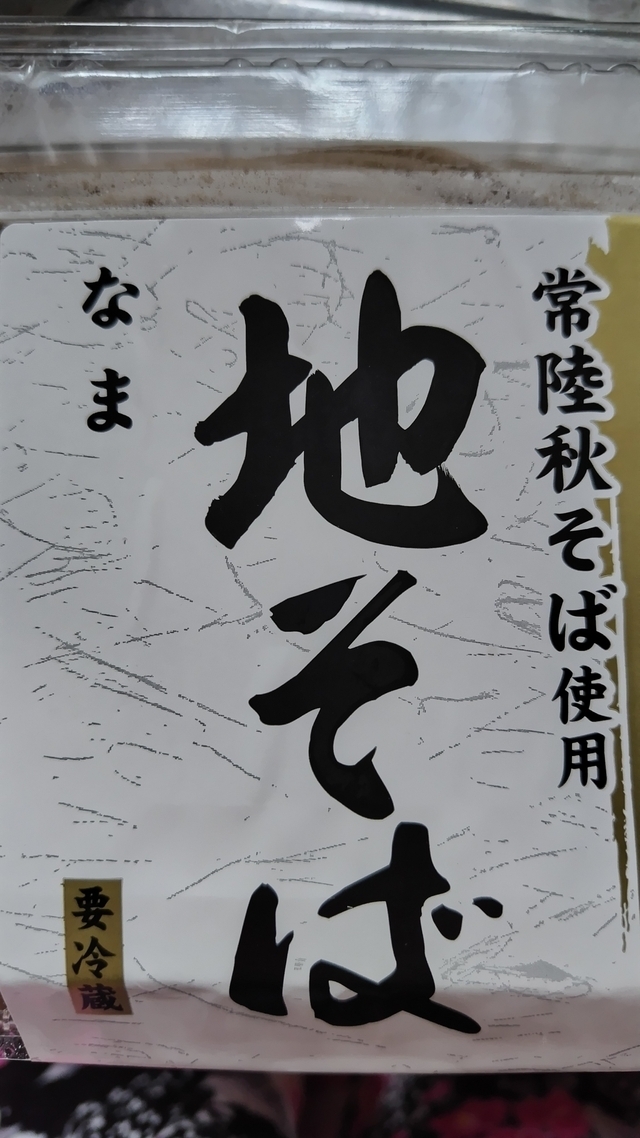 常陸秋そば使用
地そば
なま
要冷蔵